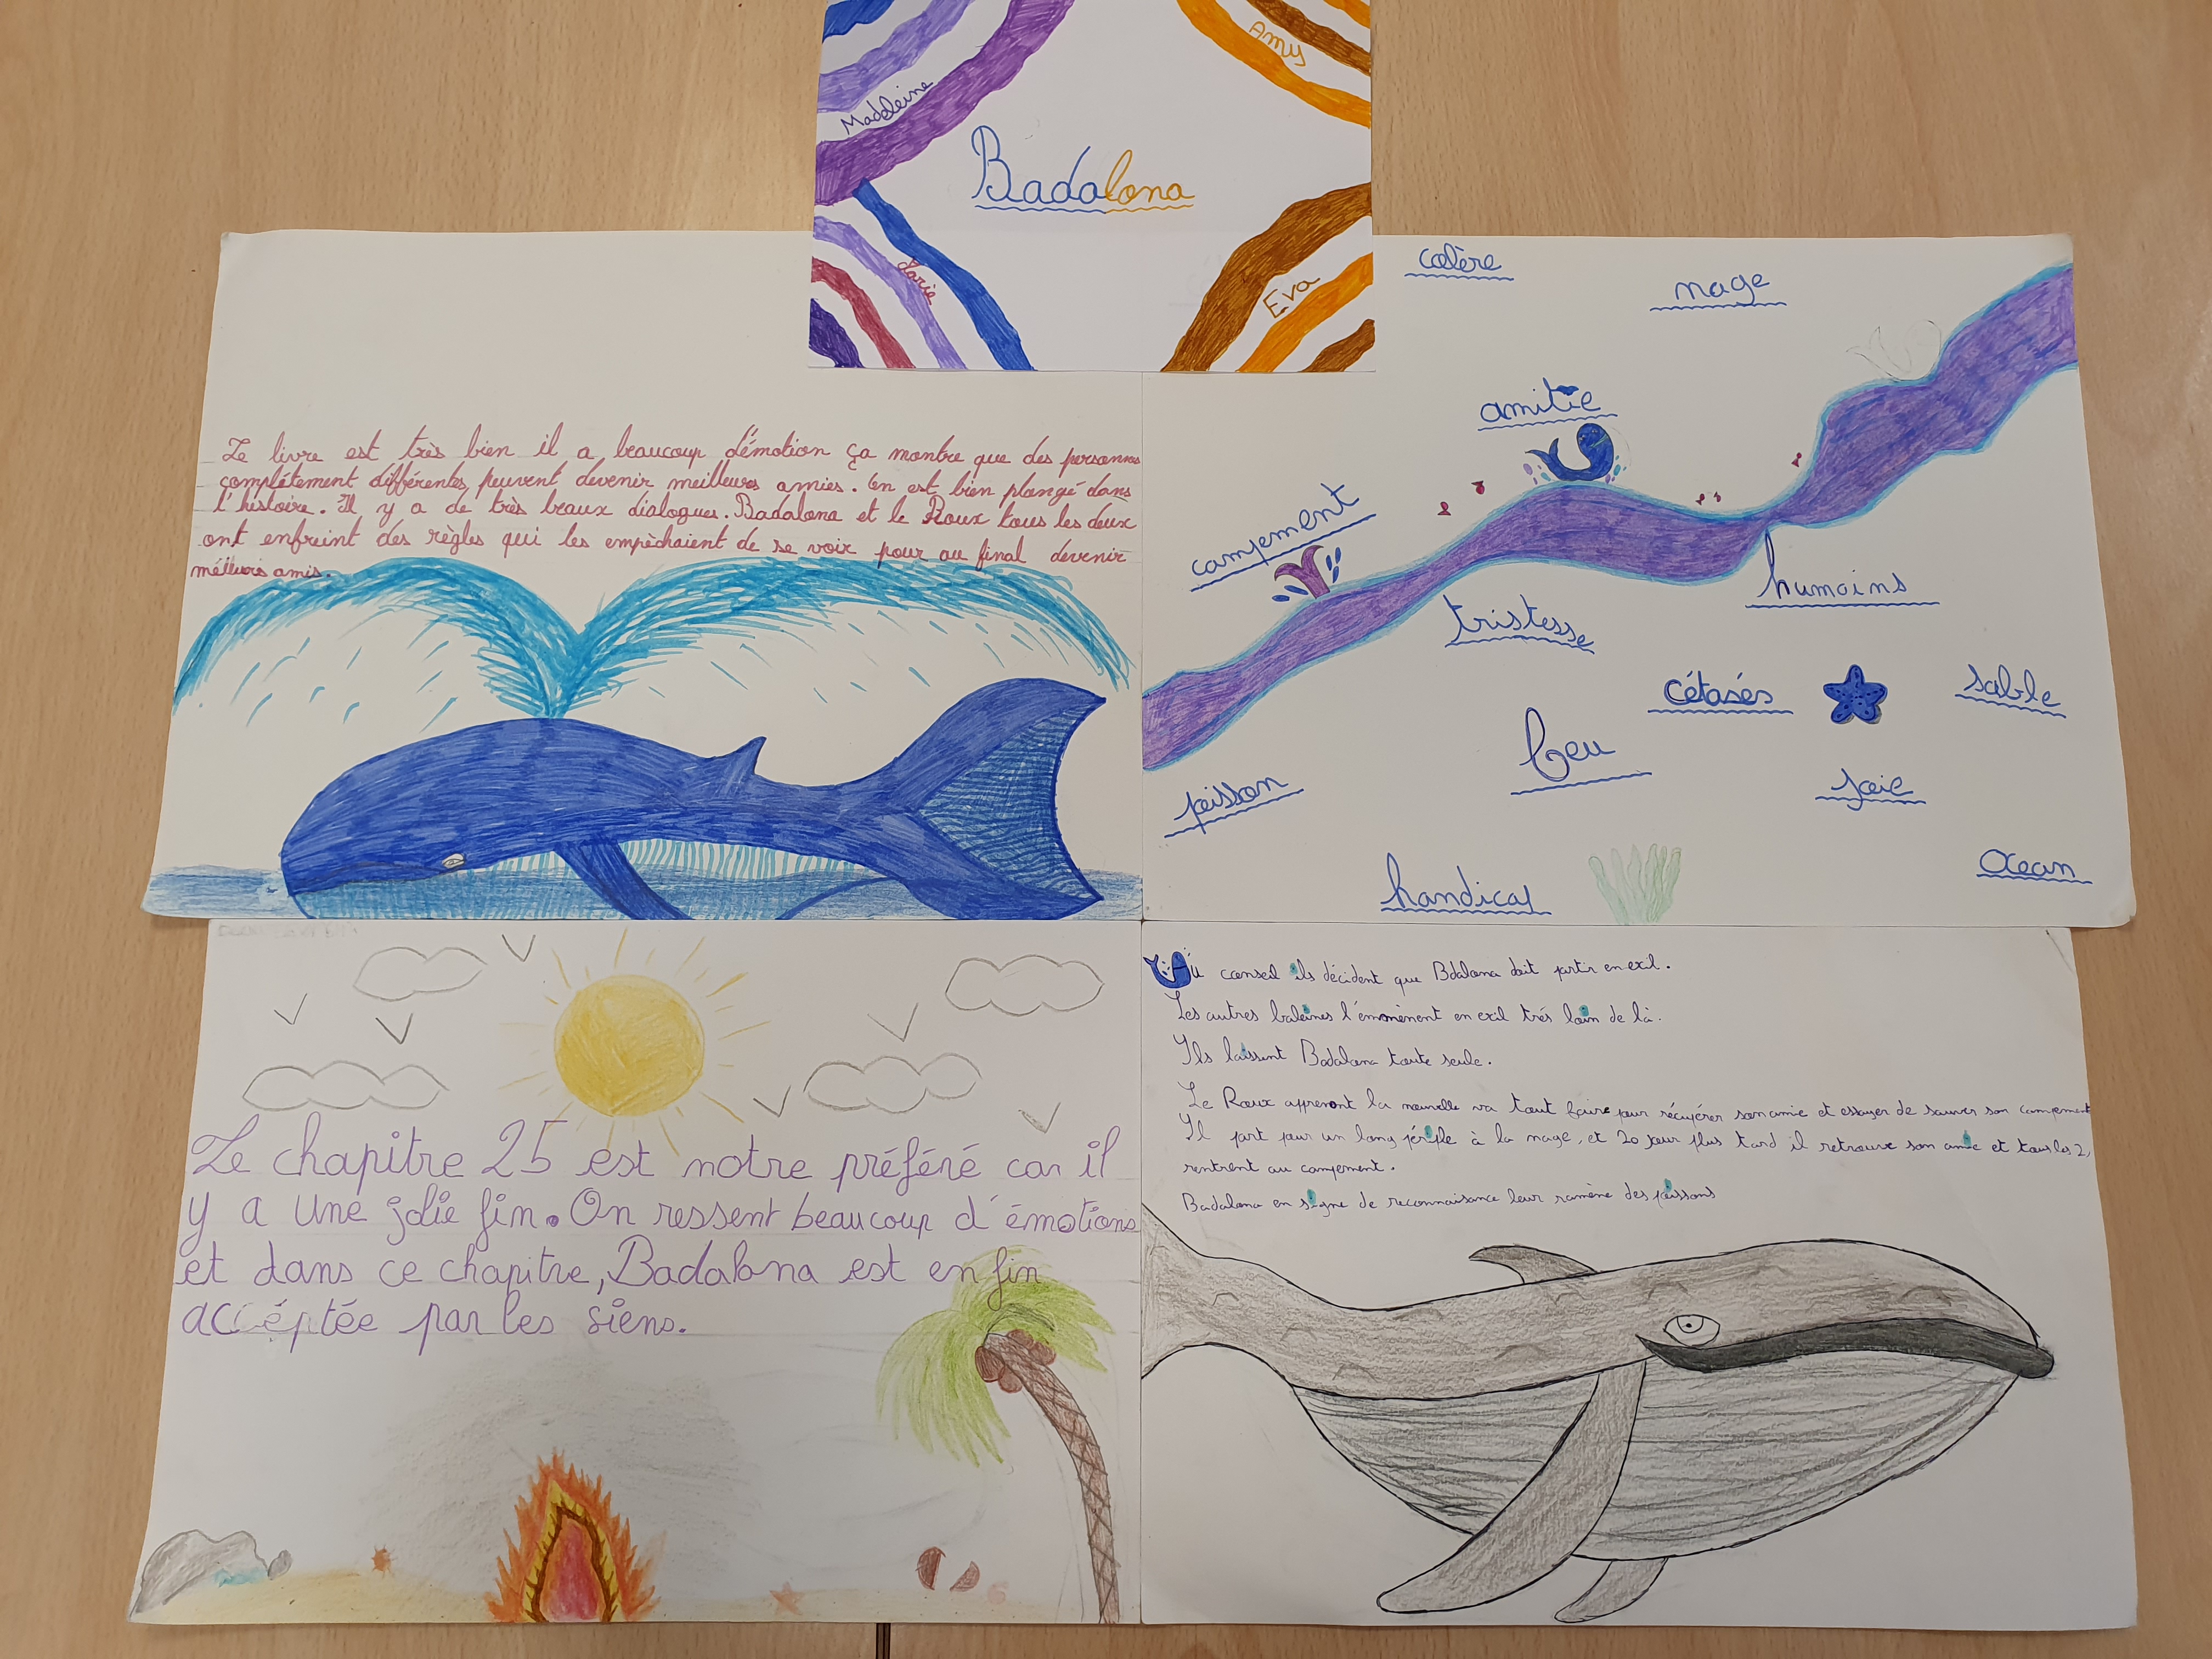 Madeleine
Amy
Badalona
Marie
Eva
Le livre est très bien il a beaucoup d'émotion ça montre que des personnes
complétement différentes peuvent devenir meilleures amies. On est bien plongé dans
l'histoire. Il y a de très beaux dialogues. Badalona et le Roux tous les deux
ont enfreint des règles qui les empêchaient de se voir pour au final devenir
meilleurs amis.
colère
nage
amitie
campement
humains
tristesse
cétasés
sable
feu
poisson
joie
Ocean
handicap
Le chapitre 25 est notre préféré car il
y a une jolie fin. On ressent beaucoup d'émotions
et dans ce chapitre, Badalona est enfin
accéptée par les siens.
Au conseil ils décident que Bdalona doit partir en exil.
Les autres baleines l'emmènent en exil trés loin de là.
Ils laissent Badalona toute seule.
Le Roux apprenont la nouvelle va tout faire pour récupérer son amie et essayer de sauver son campement
Il part pour un long périple à la nage, et 20 jour plus tard il retrouve son amie et tous les 2,
rentrent au campement.
Badalona en signe de reconnaisance leur ramène des poissons